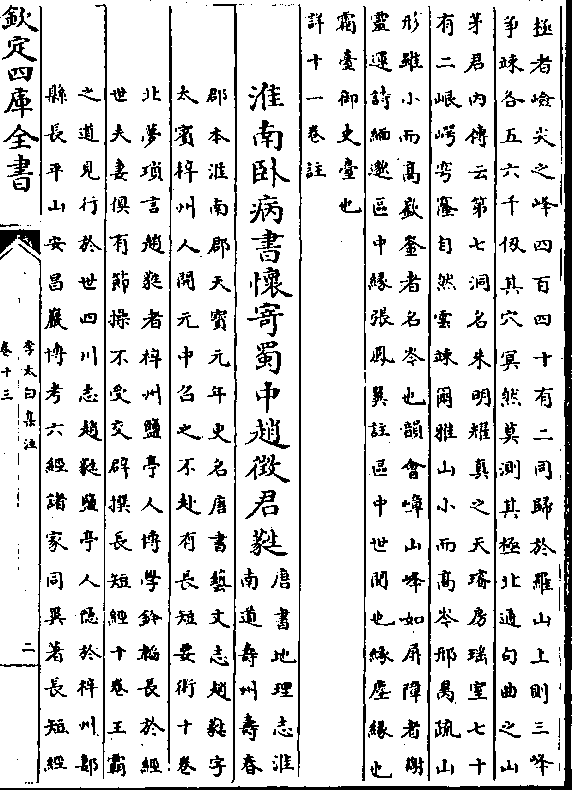 極者嶮尖之峰四百四十有二同歸於羅山上則三峰
爭竦各五六千仭其穴冥然莫測其極北通句曲之山
茅君內傳云第七洞名朱明耀真之天璿房瑤室七十
有二崐崿穹窿自然雲竦爾雅山小而高岑邢昺疏山
形雖小而高嶽崟者名岑也韻會嶂山峰如屏障者謝
靈運詩緬邈區中緣張鳳翼註區中世間也緣塵緣也
霜臺御史臺也
詳十一卷註
淮南卧病書懷寄蜀中趙徵君蕤
唐書地理志淮
南道壽州壽春
郡本淮南郡天寶元年更名唐書藝文志趙蕤字
太賓梓州人開元中召之不赴有長短要術十卷
北夢瑣言趙蕤者梓州鹽亭人博學鈐韜長於經
世夫妻俱有節操不受交辟撰長短經十卷王霸
之道見行於世四川志趙蕤鹽亭人隱於梓州郪
縣長平山安昌巖博考六經諸家同異著長短經
欽定四庫全書
李太白集注
卷十三
二